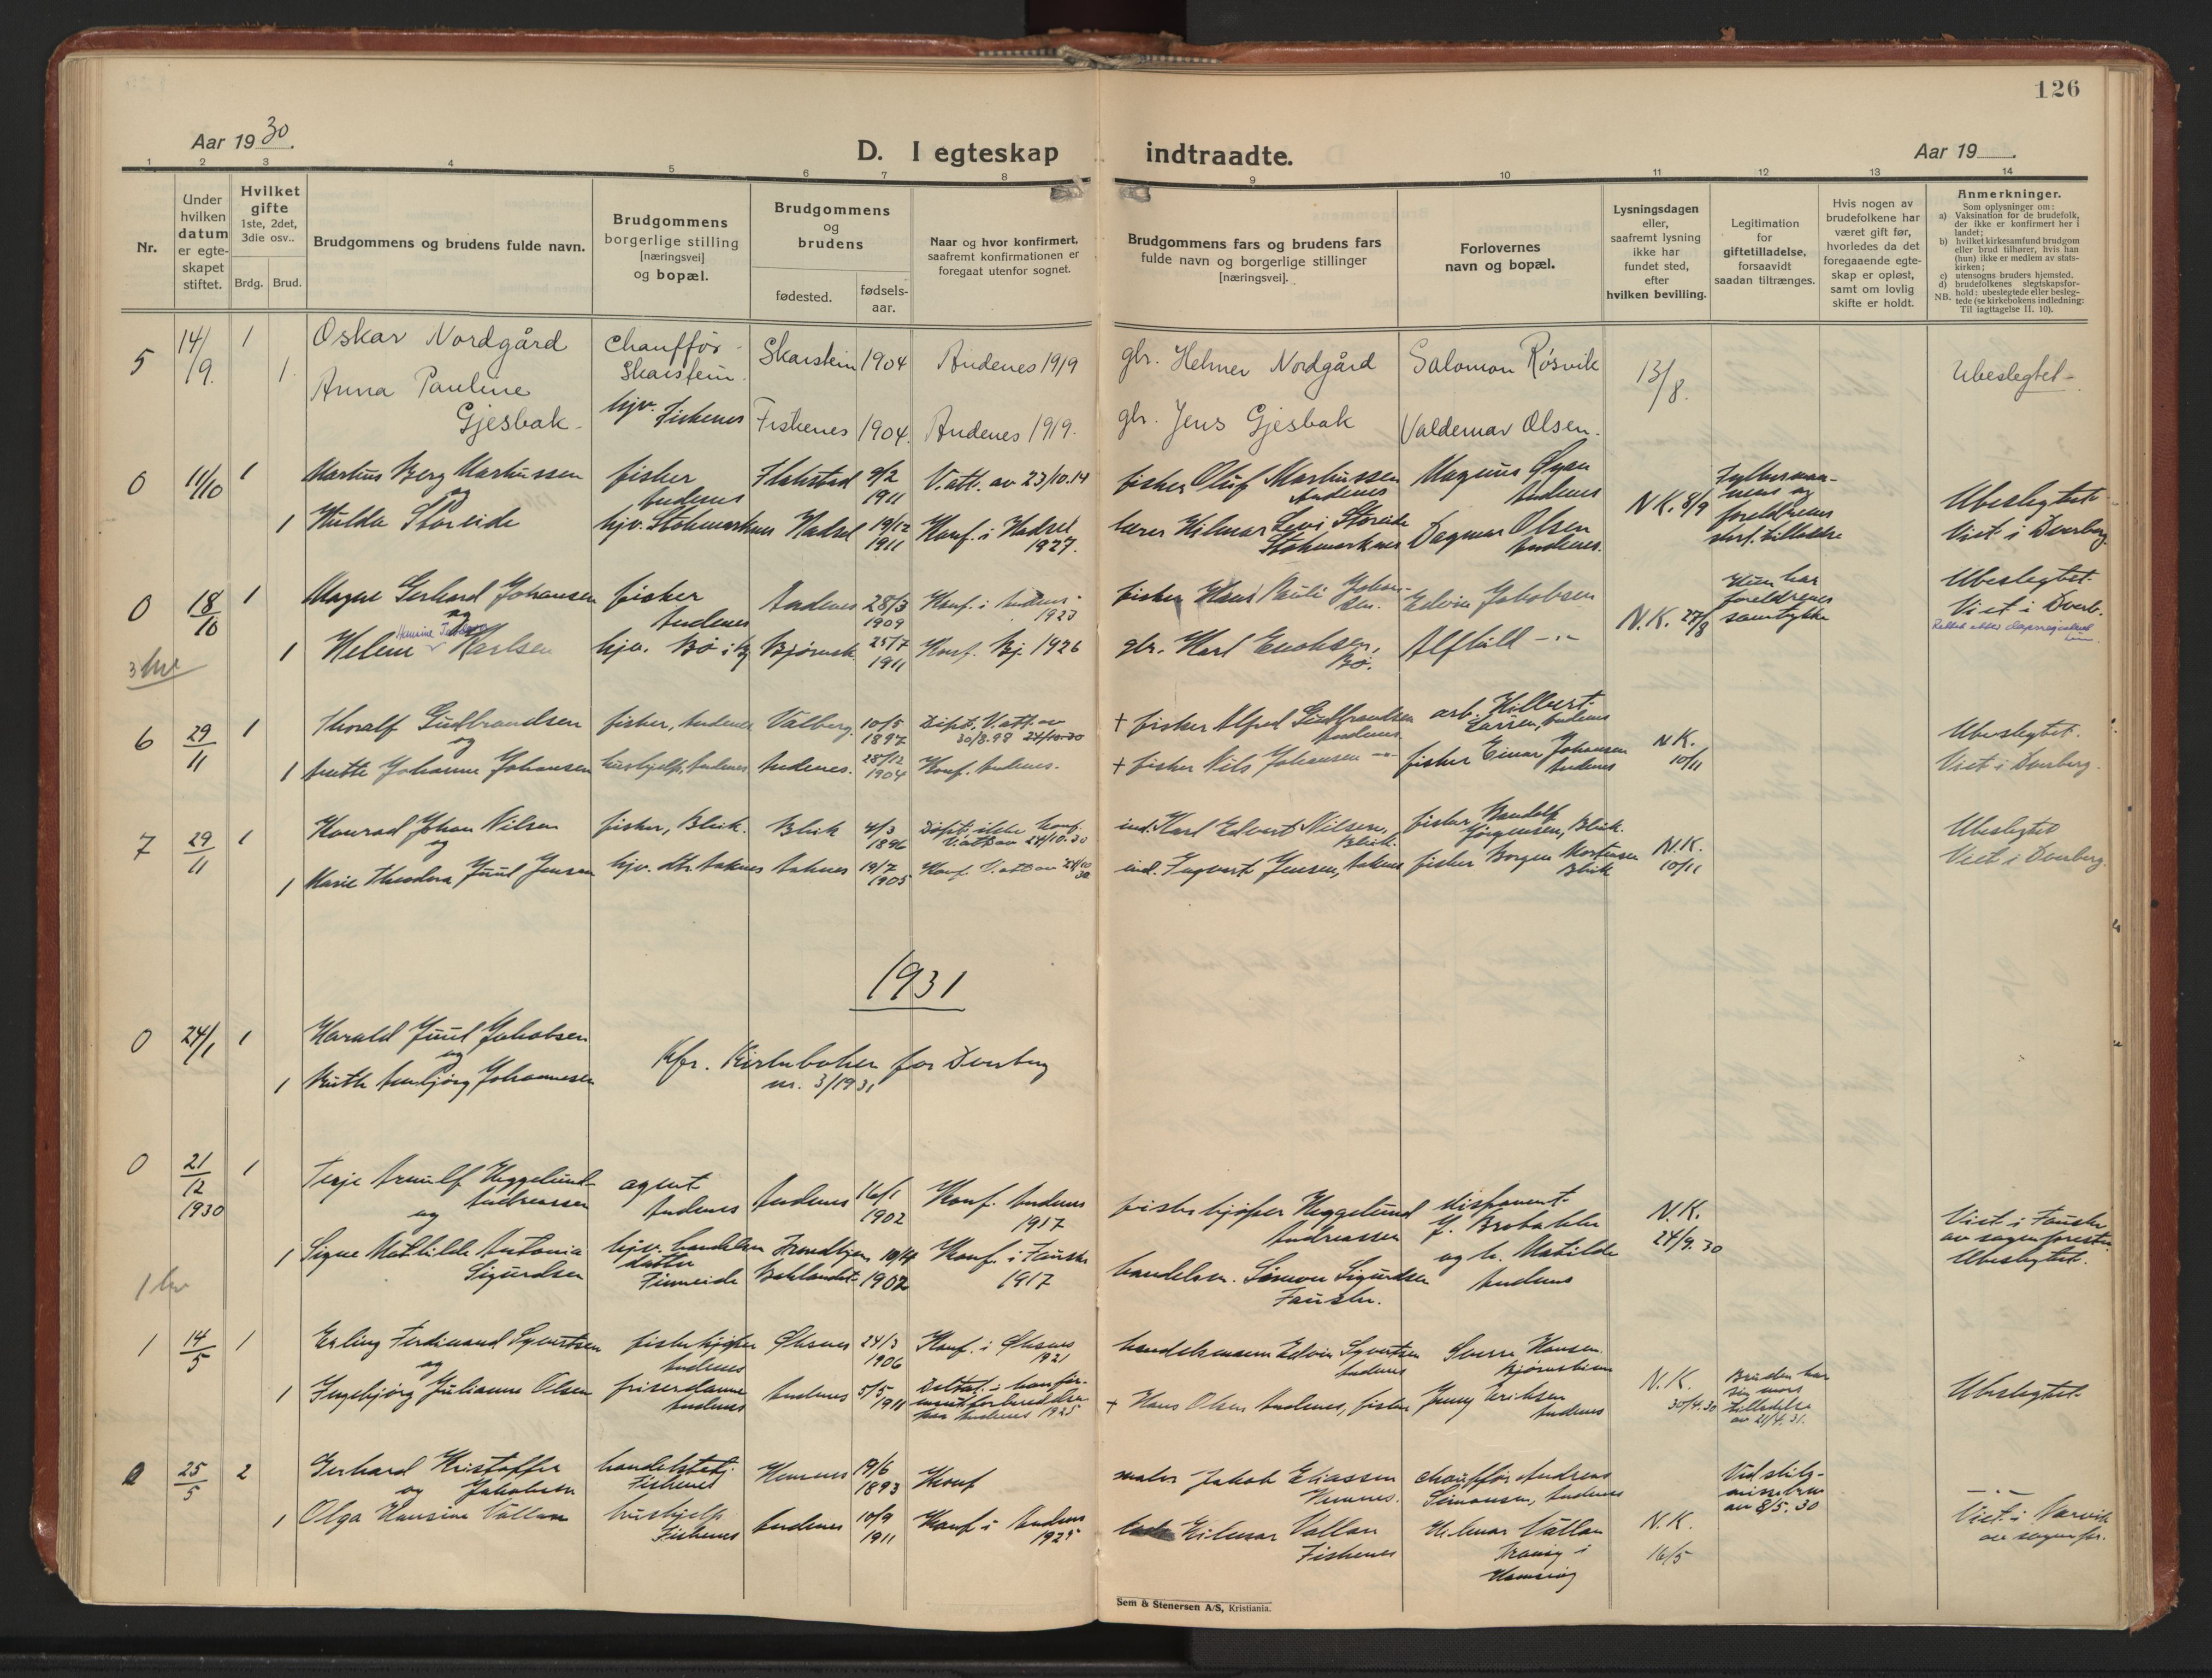 126
Aar 1930.
D. I egteskap indtraadte.
Aar 19
1 2 3 4 5 6 7 8 9 10 11 12 13 14
Nr.
Under hvilken datum er egte-skapet stiftet.
Hvilket gifte 1ste, 2det, 3die osv..
Brdg. Brud.
Brudgommens og brudens fulde navn.
Brudgommens borgerlige stilling [næringsvei] og bopæl.
Brudgommens og brudens
fødested. fødsels-aar.
Naar og hvor konfirmert, saafremt konfirmationen er foregaat utenfor sognet.
Brudgommens fars og brudens fars fulde navn og borgerlige stillinger [næringsvei].
Forlovernes navn og bopæl.
Lysningsdagen eller, saafremt lysning ikke har fundet sted, efter hvilken bevilling.
Legitimation for giftetilladelse, forsaavidt saadan tiltrænges.
Hvis nogen av brudefolkene har været gift før, hvorledes da det foregaaende egte-skap er opløst, samt om lovlig skifte er holdt.
Anmerkninger.
Som oplysninger om:
a) Vaksination for de brudefolk, der ikke er konfirmert her i landet;
b) hvilket kirkesamfund brudgom eller brud tilhører, hvis han (hun) ikke er medlem av stats-kirken;
c) utensogns bruders hjemsted.
d) brudefolkenes slegtskapsfor-hold: ubeslegtede eller besleg-tede (se kirkebokens indledning:
NB. Til iagttagelse II. 10).
5 14/9. 1 Oskar Nordgård Chauffør Skarstein. Skarstein 1904 Andenes 1919 gbr. Helmer Nordgård Salomon Røsvik 13/8. Ubeslegtet
1. Anna Pauline Gjesbak hjv. Fiskenes Fiskenes 1904. Andenes 1919. gbr. Jens Gjesbak Valdemar Olsen.
0 11/10 1 Martius Berg Markussen fisker Andenes 9/2 1911 V.att. av 23/10.14 fisker Oluf Markussen Andenes Magnus Andenes N.K. 8/9 Ubeslegtet
og
1 Hulda Støreide hjv. Stokmarknes Hadsel 19/12 1911 Konf. i Hadsel 1927. lærer Hilmar Levi Støreide Stokmarknes Dagmar Olsen Andenes. foreldrenes skrf. tilladelse Viet i Dverberg.
0 18/10 1 Magne Gerhard Johansen fisker Andenes Andenes 28/3 1909 Konf. i Andenes 1923 fisker Hans Pauli Johan-sen. Edvin Jakobsen N.K. 27/8 Hun har foreldrenes samtykke Ubeslegtet.
og
1 Helene Karlsen hjv. Bø 25/7 1911 Konf. Bj. 1926 gbr. Karl Enoksen, Bø. Viet i Dverb.
6 29/11 1 Thoralf Gudbrandsen fisker, Andenes Valberg. 10/5 1897 Døpt. V.att. av 30/8.98 24/10.30 + fisker Alfred Gudbrandsen Andenes arb. Hilbert Larsen, Andenes N.K. 10/11 Ubeslegtet.
og
1 Anette Johanne Johansen hushjelp, Andenes Andenes. 28/12 1904 Konf. Andenes. + fisker Nils Johansen -"- fisker Einar Johansen Andenes Viet i Dverberg.
7 29/11 1 Konrad Johan Nilsen fisker, Bleik. Bleik 4/3 1896 Døpt, ikke konf. V.att av 24/10.30 ind. Karl Edvart Nilsen, Bleik. fisker Jørgensen, Bleik. N.K. 10/11 Ubeslegtet
og
1 Marie Theodora Juul Jensen hjv. 19/7 1905 Konf. V.att av ind. Ingvart Jensen, fisker Borgen Mortensen Bleik Viet i Dverberg.
1931
0 24/1 1 Harald Juul Jakobsen
og
1 Ruth Annbjørg Johannesen
Kfr. Kirkeboken for Dverberg
nr. 3/1931
0 21/12 1930 1 Terje Arnulf Heggelund Andreassen agent Andenes Andenes 16/1 1902 Konf. Andenes 1917 fiskekjøper Heggelund Andreassen disponent N.K. 24/9.30 Viet i Fauske
og
1 Signe Mathilde Antonia Sigurdsen hjv. Finneide Baklandet 1902 Konf. i Fauske 1917 handelsm. Simon Sigurdsen Fauske. og h. Matilde Andenes Ubeslegtet.
1 14/5 1 Erling Ferdinand Syvertsen fiskekjøper Andenes Øksnes 24/3 1906 Konf. i Øksnes 1921 handelsmann Edvin Syvertsen Andenes Sverre Hansen N.K. 30/4.30 Bruden har sin mors tilladelse av 21/4.31. Ubeslegtet.
og
1 Ingebjørg Julianne Olsen friserdame Andenes Andenes 5/5 1911 Andenes 1925 + Hans Olsen Andenes, fisker Jenny Eriksen Andenes
25/5 2 Gerhard Kristoffer Jakobsen Fiskenes Hemnes 19/6 1893 Konf maler Jakob Eliassen Hemnes. chauffør Andreas Simonsen, Andenes av 8/5.30
og
1 Olga Hansine Vollan hushjelp Fiskenes Andenes 10/9 1911 Konf i Andenes 1925 Hilmar Vollan Fiskenes Hilmar Vollan N.K. 16/5 Viet i Narvik
Sem & Stenersen A/S, Kristiania.